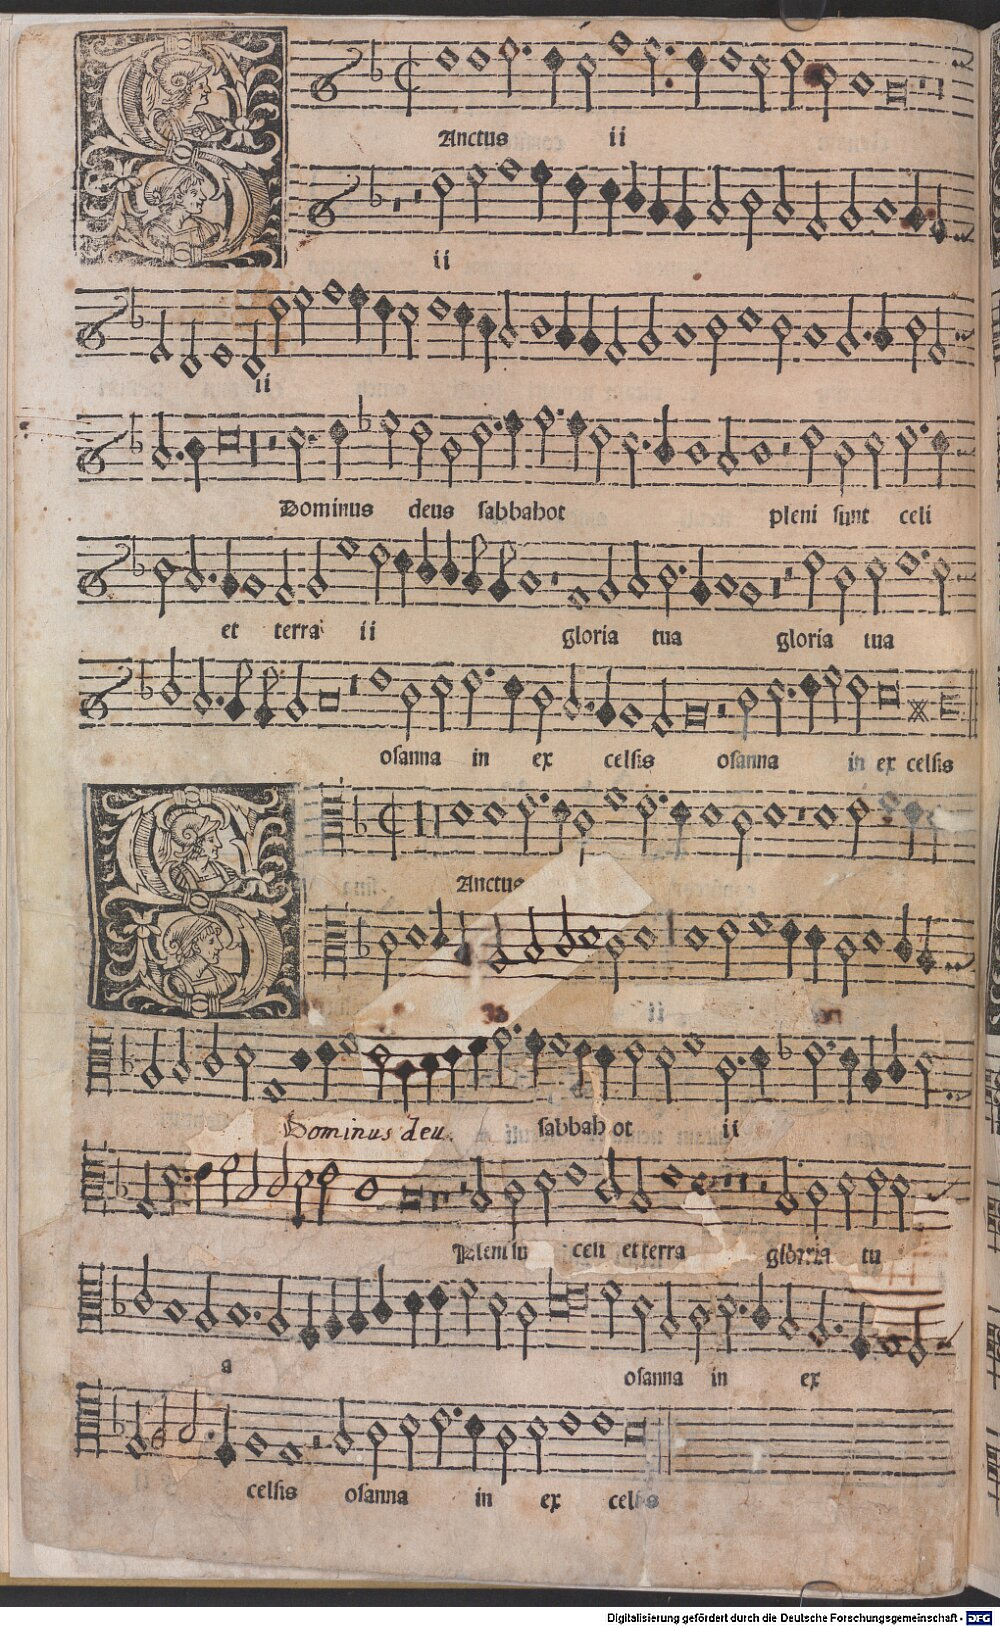 SAnctus ii
ii
ii
Dominus deus sabbahot pleni sunt celi
et terra ii gloria tua gloria tua
osanna in ex celsis osanna in ex celsis
SAnctus
ii
Dominus deu sabbahot ii
Pleni su celi et terra gloria tu
a osanna in ex
celsis osanna in ex celsis
Digitalisierung gefördert durch die Deutsche Forschungsgemeinschaft - DFG